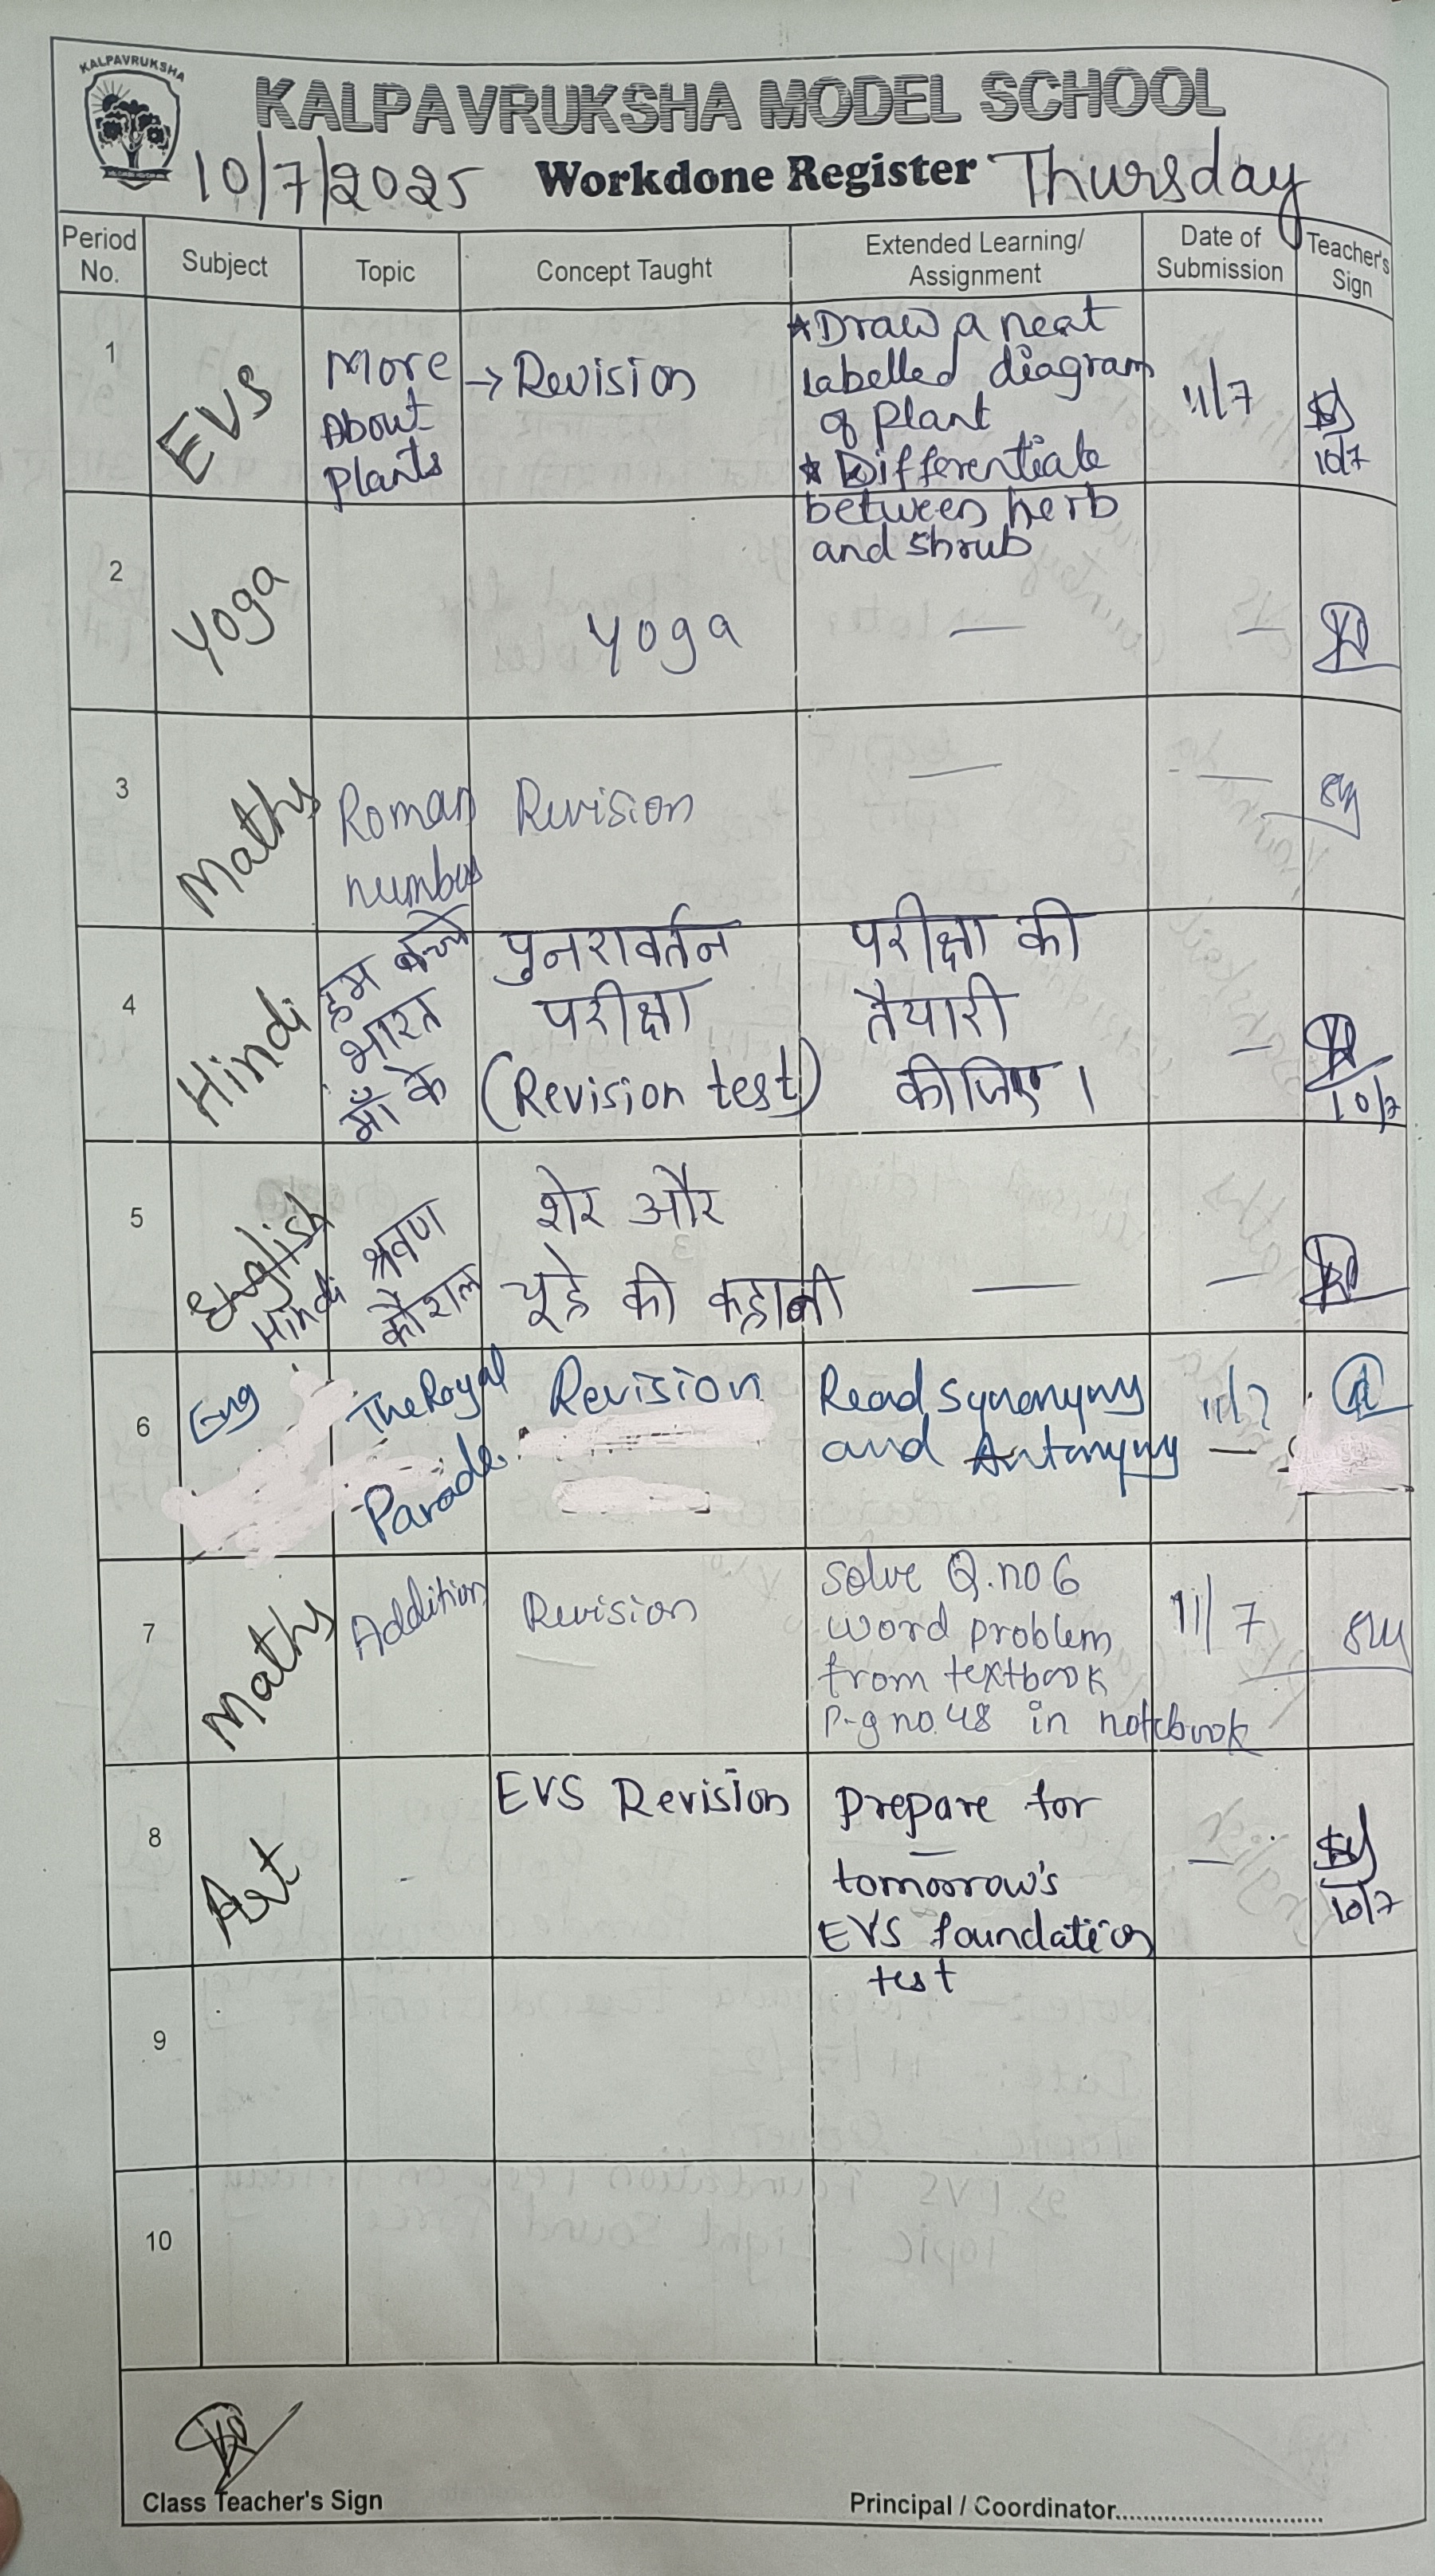 KALPAVRUKSHA
KALPAVRUKSHA MODEL SCHOOL
10/7/2025 Workdone Register Thursday
Period No. Subject Topic Concept Taught Extended Learning/ Assignment Date of Submission Teacher's Sign
1 EVS More About Plants → Revision
★ Draw a neat
labelled diagram
of plant
★ Differentiate
between herb
and shrub
11/7
10/7
2 Yoga Yoga — —
3 Maths Roman numbers Revision — —
4 Hindi
हम बच्चे
भारत
माँ के
पुनरावर्तन
परीक्षा
(Revision test)
परीक्षा की
तैयारी
कीजिए।
—
10/7
5 English
Hindi
श्रवण
कौशल
शेर और
चूहे की कहानी
— —
6 Eng
The Royal
Parade
Revision
Read Synonyms
and Antonyms
11/7
—
7 Maths Addition Revision
Solve Q.no 6
word problem
from textbook
P-g no. 48 in notebook
11/7
8 Art - EVS Revision
Prepare for
tomorrow's
EVS foundation
test
—
10/7
9
10
Class Teacher's Sign
Principal / Coordinator..............................